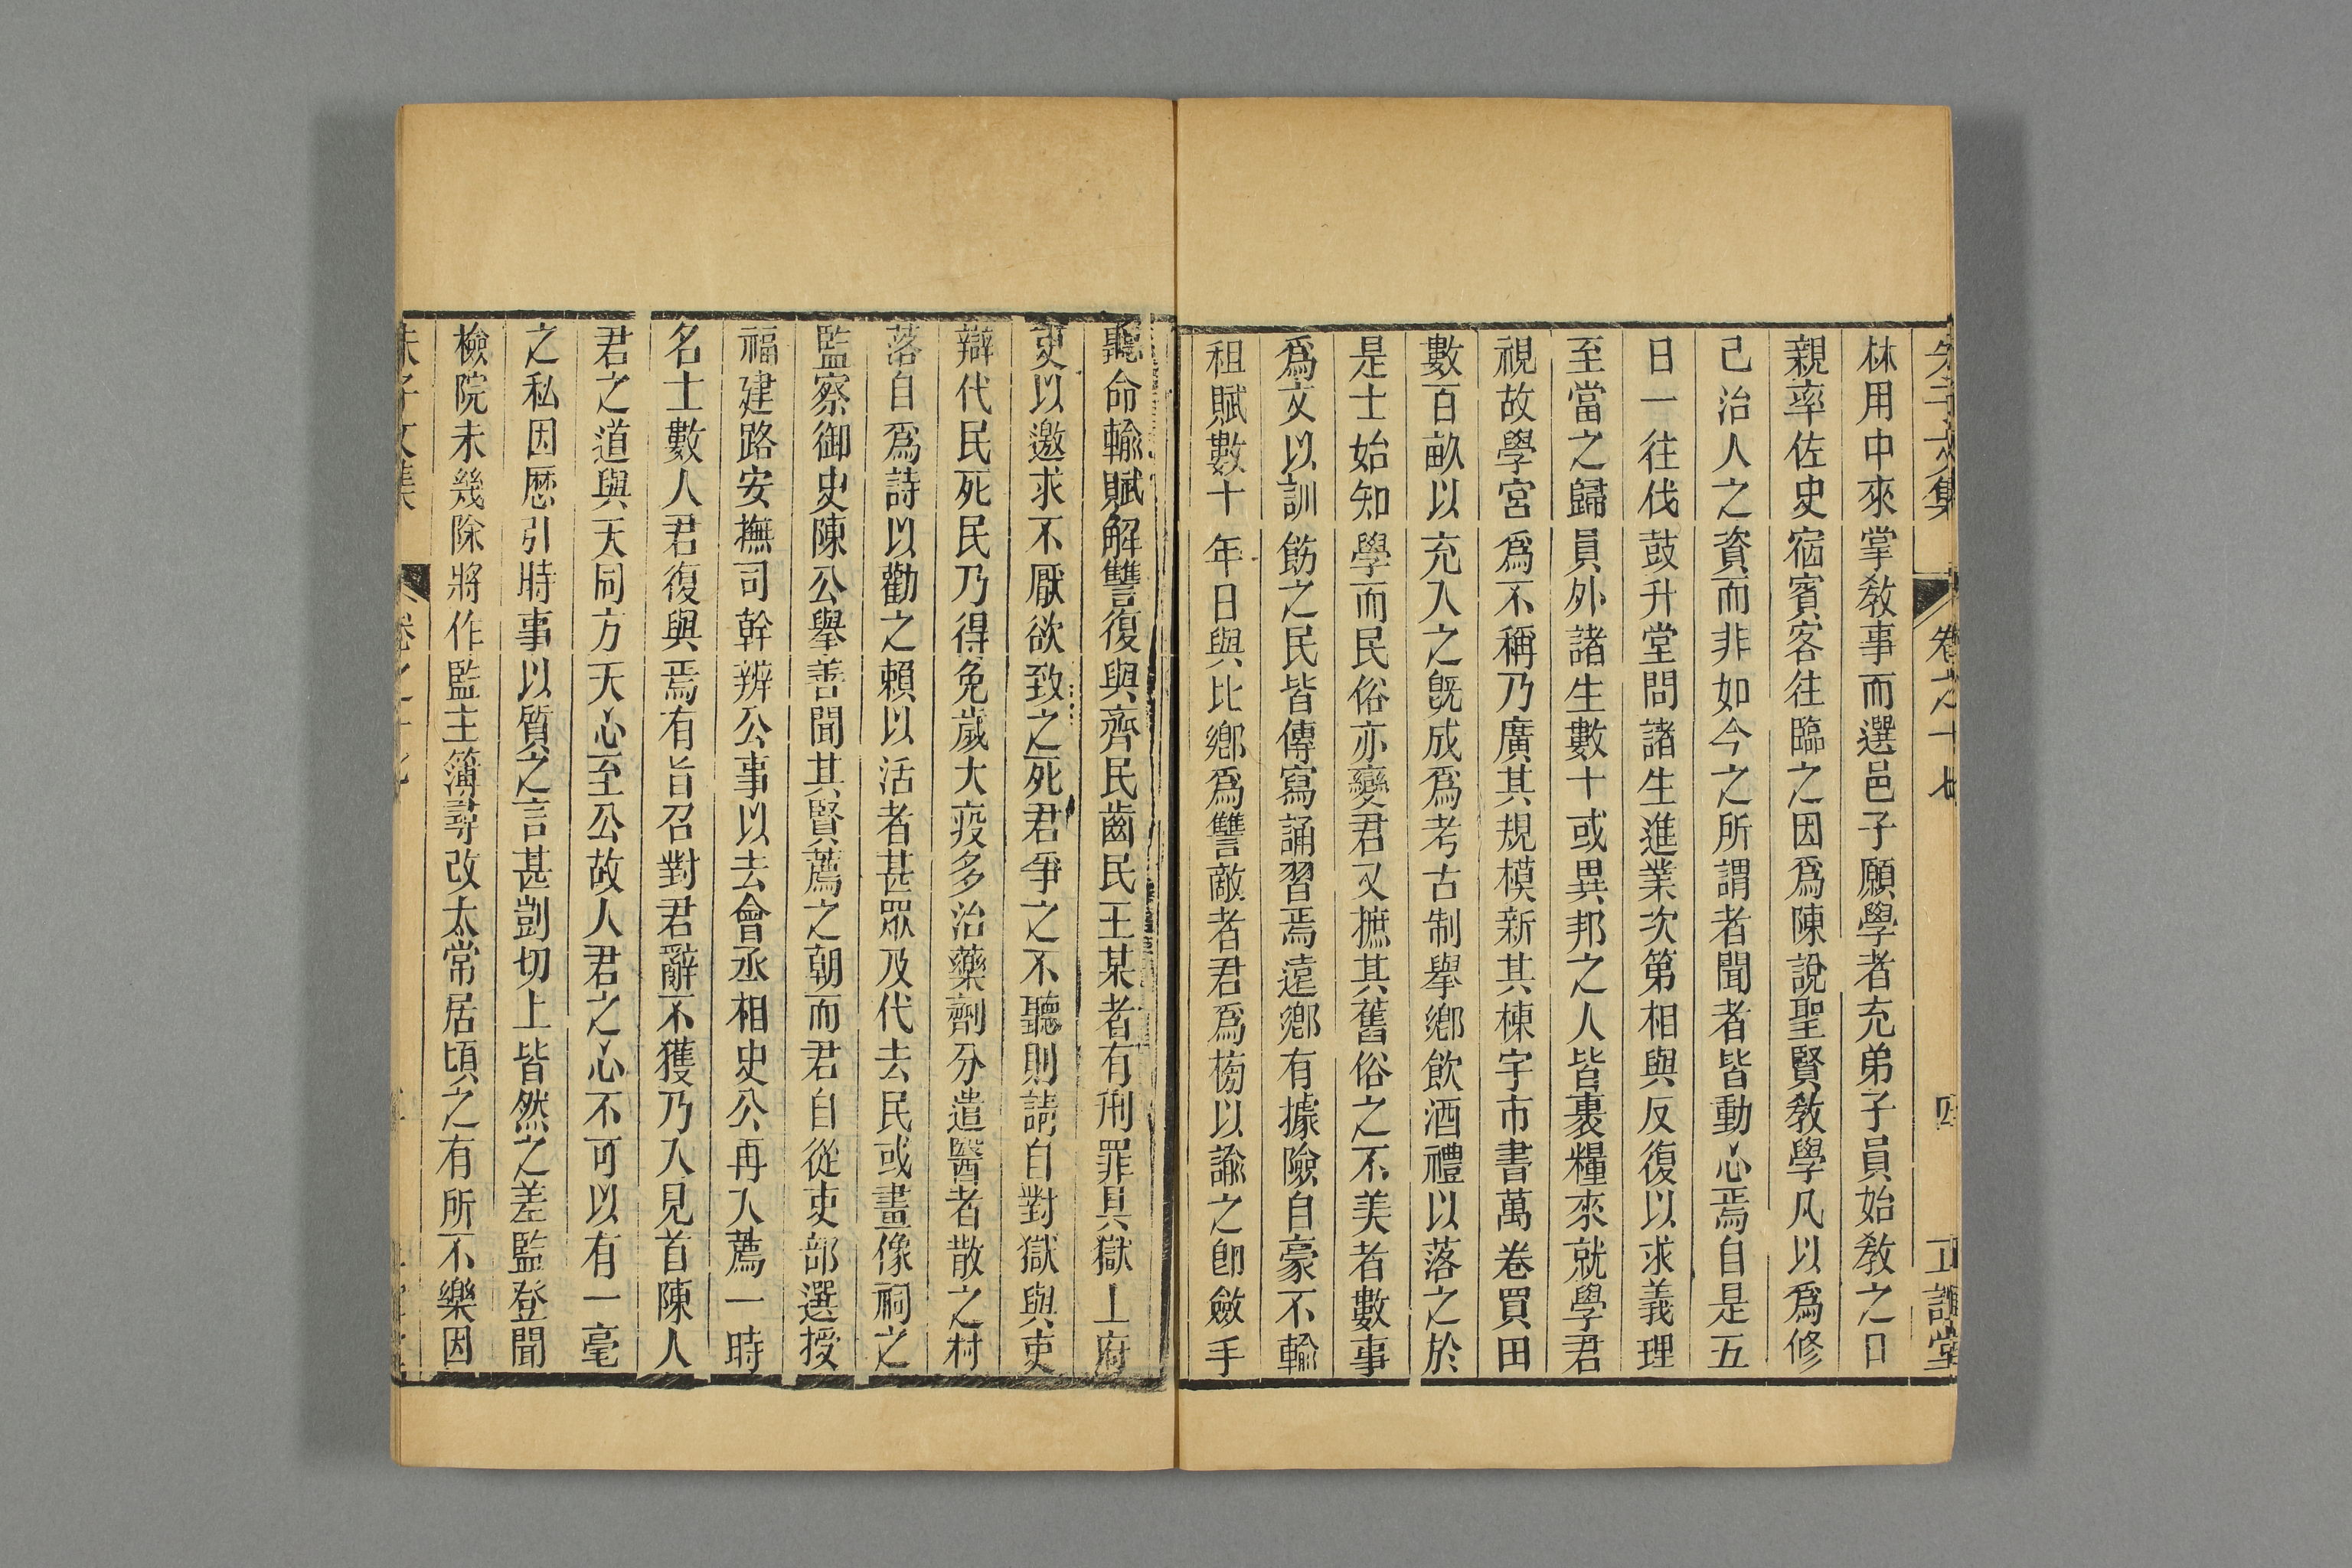 朱子文集 卷之十七 四 正誼堂
林用中來掌敎事而選邑子願學者充弟子員始敎之日
親率佐史宿賓客往臨之因爲陳說聖賢敎學凡以爲修
己治人之資而非如今之所謂者聞者皆動心焉自是五
日一往伐鼓升堂問諸生進業次第相與反復以求義理
至當之歸員外諸生數十或異邦之人皆裹糧來就學君
視故學宮爲不稱乃廣其規模新其棟宇市書萬卷買田
數百畝以充入之旣成爲考古制舉鄉飲酒禮以落之於
是士始知學而民俗亦變君又摭其舊俗之不美者數事
爲文以訓飭之民皆傳寫誦習焉遠鄉有據險自豪不輸
租賦數十年日與比鄉爲讐敵者君爲榜以諭之卽斂手
聽命輸賦解讐復與齊民齒民王某者有刑罪具獄上府
吏以邀求不厭欲致之死君爭之不聽則請自對獄與吏
辯代民死民乃得免歲大疫多治藥劑分遣醫者散之村
落自爲詩以勸之賴以活者甚眾及代去民或畫像祠之
監察御史陳公舉善聞其賢薦之朝而君自從吏部選授
福建路安撫司幹辨公事以去會丞相史公再入薦一時
名士數人君復與焉有旨召對君辭不獲乃入見首陳人
君之道與天同方天心至公故人君之心不可以有一毫
之私因歷引時事以質之言甚剴切上皆然之差監登聞
檢院未幾除將作監主簿尋改太常居頃之有所不樂因
朱子文集 卷之十七